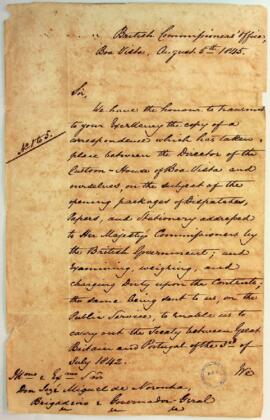 British Commissioners' Office,
Boa Vista, August 5th 1845.
Sir,
We have the honour to transmit
to your Excellency the copy of a
correspondence which has taken
place between the Director of the
Custom-House of Boa Vista and
ourselves, on the subject of the
opening packages of Despatches,
Papers, and Stationery addressed
to Her Majesty's Commissioners by
the British Government; and
examining, weighing, and
charging Duty upon the Contents,
the same being sent to us, on the
Public Service, to enable us to
carry out the Treaty between Great
Britain and Portugal of the 3rd of
July 1842.
We
Don José Miguel de Noronha,
Brigadeiro e Governador-Geral